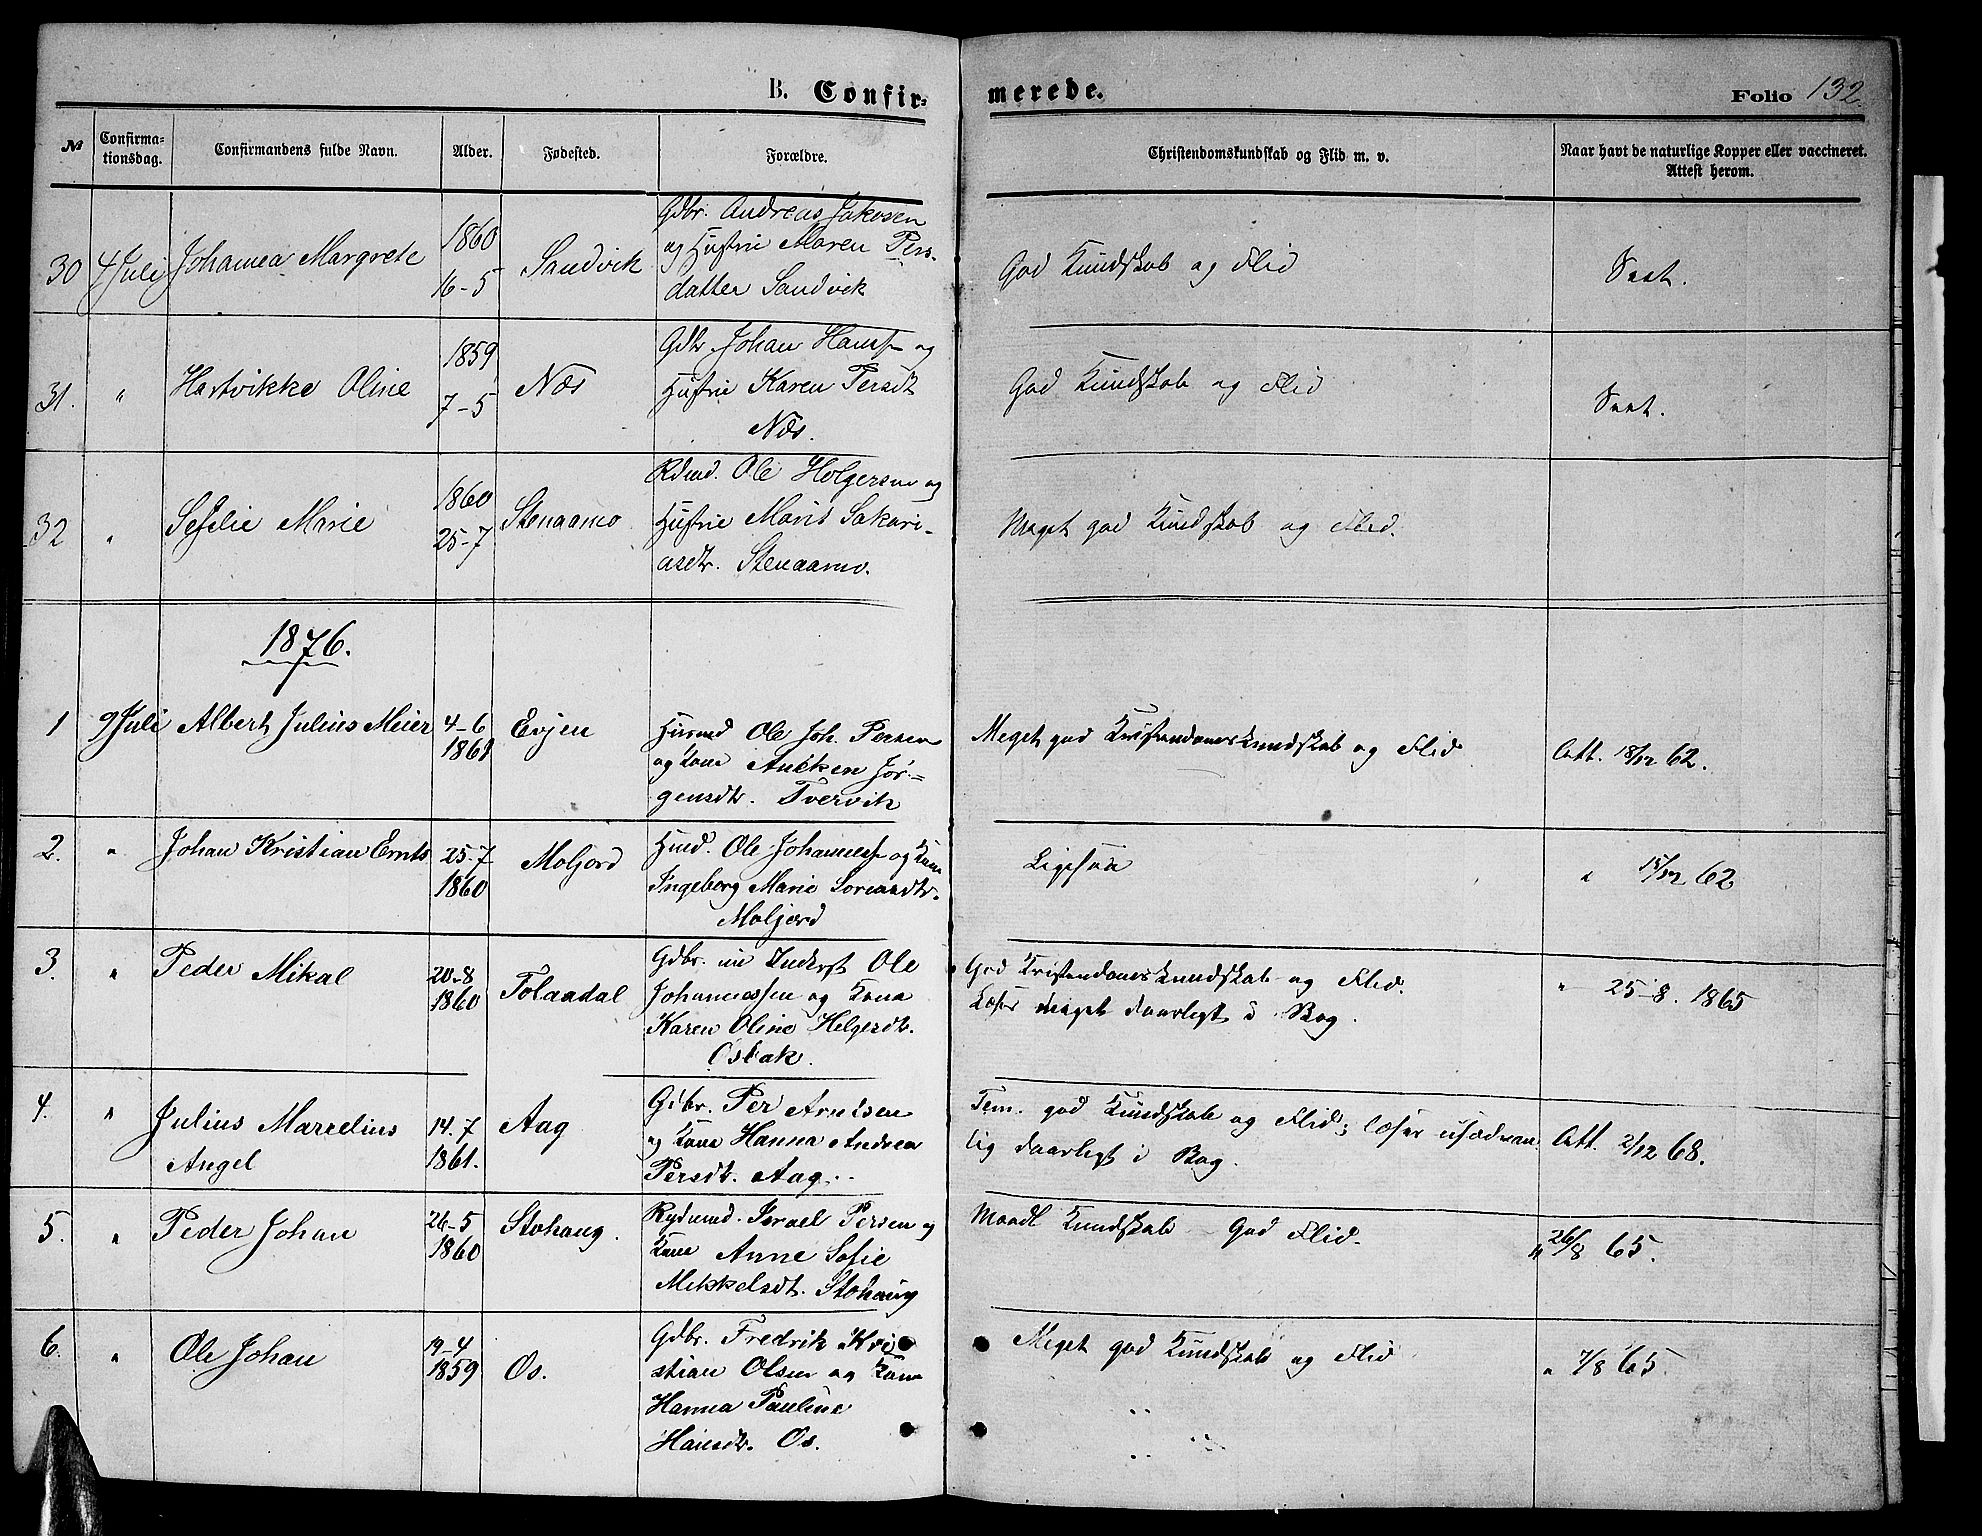 B. Confir-
merede.
Folio 132.
№
Confirma-
tionsdag.
Confirmandens fulde Navn.
Alder.
Fødested.
Forældre.
Christendomskundskab og Flid m. v.
Naar havt de naturlige Kopper eller vaccineret.
Attest herom.
30 4 Juli Johanna Margrete
1860
16-5
Sandvik
Gdbr. Andreas Jakosen
og Hustrue Maren Pers-
datter Sandvik
God Kundskab og Flid
Seet.
31. " Hartvikke Oline
1859
7-5
Næs
Gdbr Johan Hanss og
Hustrue Karen Persdt
Næs.
God Kundskab og Flid
Seet.
32 " Sefelie Marie
1860
25-7
Stenaamo
Rdmd. Ole Holgersen og
Hustrue Marit Sakari-
asdtr. Stenaamo.
Meget god Kundskab og Flid.
1876.
1 9 Juli Albert Julius Meier
4-6
1861
Evjen
Husmd Ole Joh. Persen
og Kone Anken Jør-
gensdtr. Tvervik
Meget god Kristendomskundskab og Flid
Att. 18/12 62.
2. " Johan Kristian Ernts
25-7
1860
Moljord
Husmd. Ole Johanness og Kone
Ingeborg Marie Sorensdtr.
Moljord
Ligesaa
" 15/12 62
3. " Peder Mikal
20-8
1860
Tolaadal
Gdbr. nu Inderst Ole
Johannessen og Kone
Karen Oline Helgerdt.
Osbak.
God Kristendomskundskab og Flid.
Læser meget daarligt i Bog.
" 25-8. 1865
4. " Julius Marselius
Angel
14-7
1861.
Aag
Gdbr. Per Arntsen
og Kone Hanna Andrea
Persdt. Aag.
Tem. god Kundskab og Flid; læser usædvan
lig daarligt i Bog.
Att. 2/12 68.
5. " Peder Johan
26-5
1860
Stohaug.
Rydmd. Israel Persen og
Kone Anne Sofie
Mikkelsdt. Stohaug
Maadl Kundskab God Flid.
" 26/8 65.
6. " Ole Johan
19-4
1859
Os.
Gdbr. Fredrik Kri
stian Olsen og Kone
Hanna Pauline
Hansdtr. Os.
Meget god Kundskab og Flid
" 7/8 65.